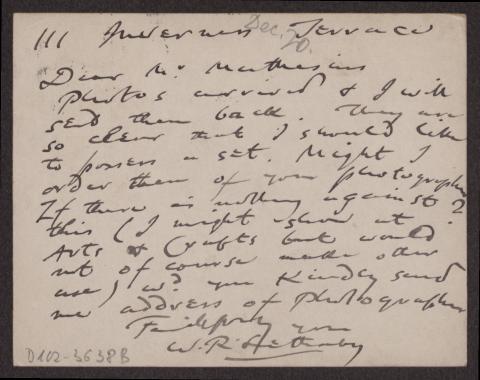 111 Inverness Terrace
Dec. 20.
Dear Mr Muthesius
Photos arrived & I will
send them back. They are
so clear that I should like
to possess a set. Might I
order them of your photographer?
If there is nothing against
this (I might show at
Arts & Crafts but would
not of course make other
use) wd you kindly send
me address of photographer
Faithfully yours
W. R. Lethaby
D102-3638B